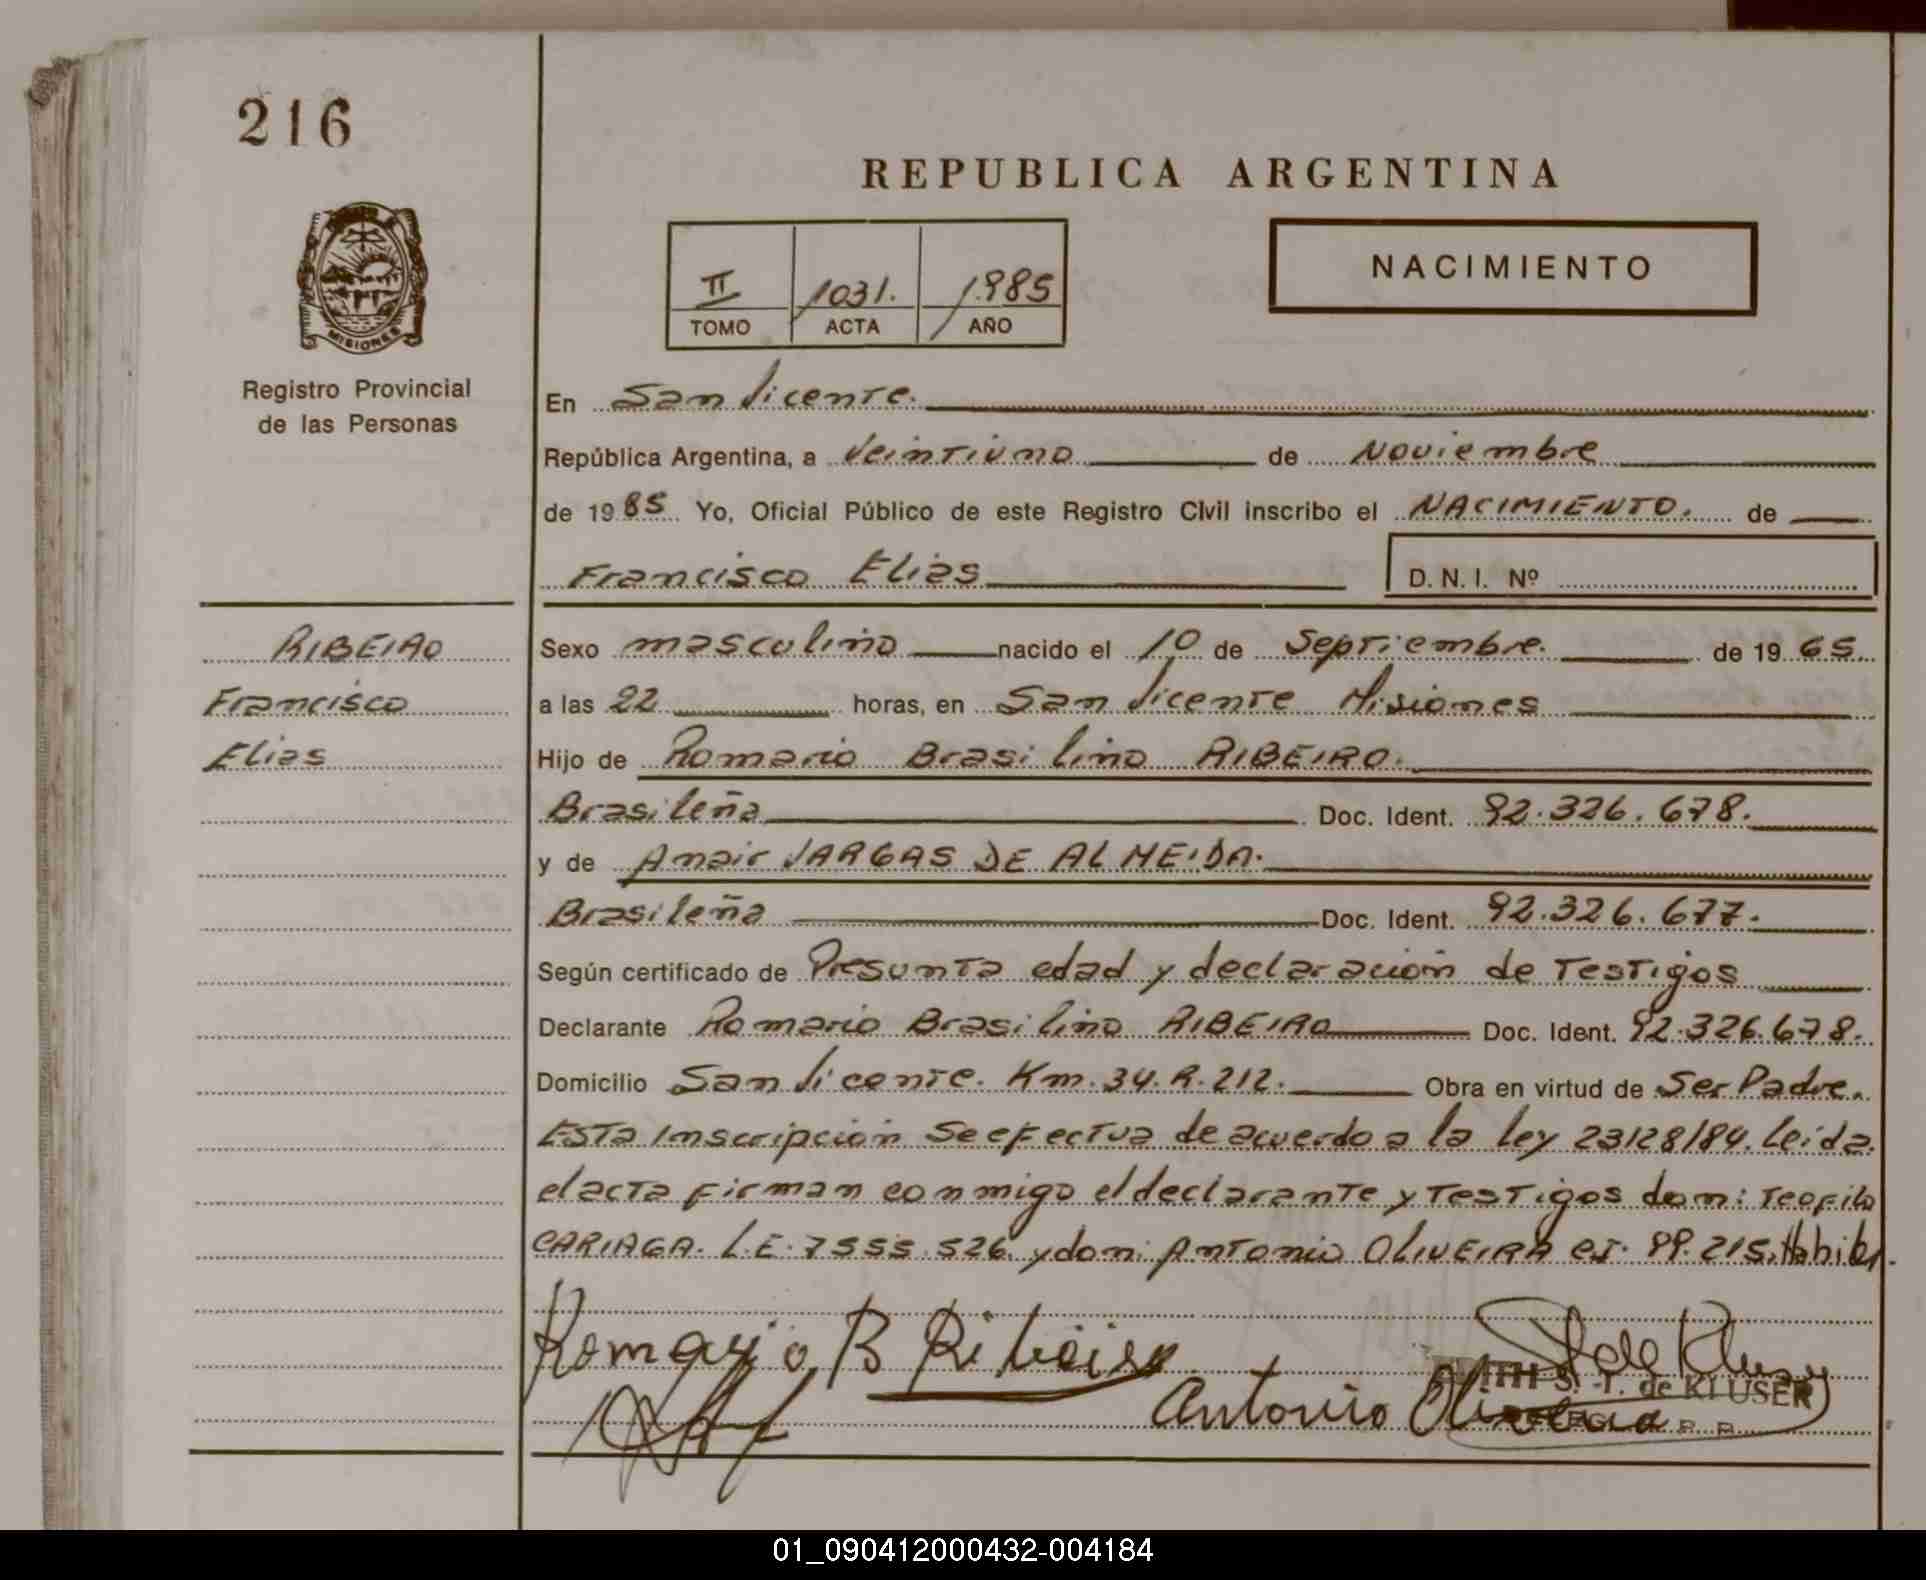 216
REPUBLICA ARGENTINA
MISIONES
II 1031. 1985
TOMO ACTA AÑO
NACIMIENTO
Registro Provincial
de las Personas
En San Vicente.
República Argentina, a Veintiuno de Noviembre
de 1985 Yo, Oficial Público de este Registro Civil inscribo el NACIMIENTO. de
Francisco Elias D. N. I. Nº
RIBEIRO
Francisco
Elias
Sexo masculino nacido el 10 de Septiembre. de 1965.
a las 22 horas, en San Vicente Misiones
Hijo de Romario Brasilino RIBEIRO.
Brasileña Doc. Ident. 92.326.678.
y de Anair VARGAS DE ALMEIDA.
Brasileña Doc. Ident. 92.326.677.
Según certificado de Presunta edad y declaración de Testigos
Declarante Romario Brasilino RIBEIRO Doc. Ident. 92.326.678.
Domicilio San Vicente. Km. 34. R. 212. Obra en virtud de Ser Padre.
Esta Inscripción se efectua de acuerdo a la ley 23128/84. Leida
el acta firman conmigo el declarante y Testigos don: Teofilo
CARIAGA. L.E. 7555.526. y don: Antonio OLIVEIRA CI. 99.215. Habiles.
Romario B Ribeiro
S. T. de KLUSER
Antonio Oliveira
01_090412000432-004184